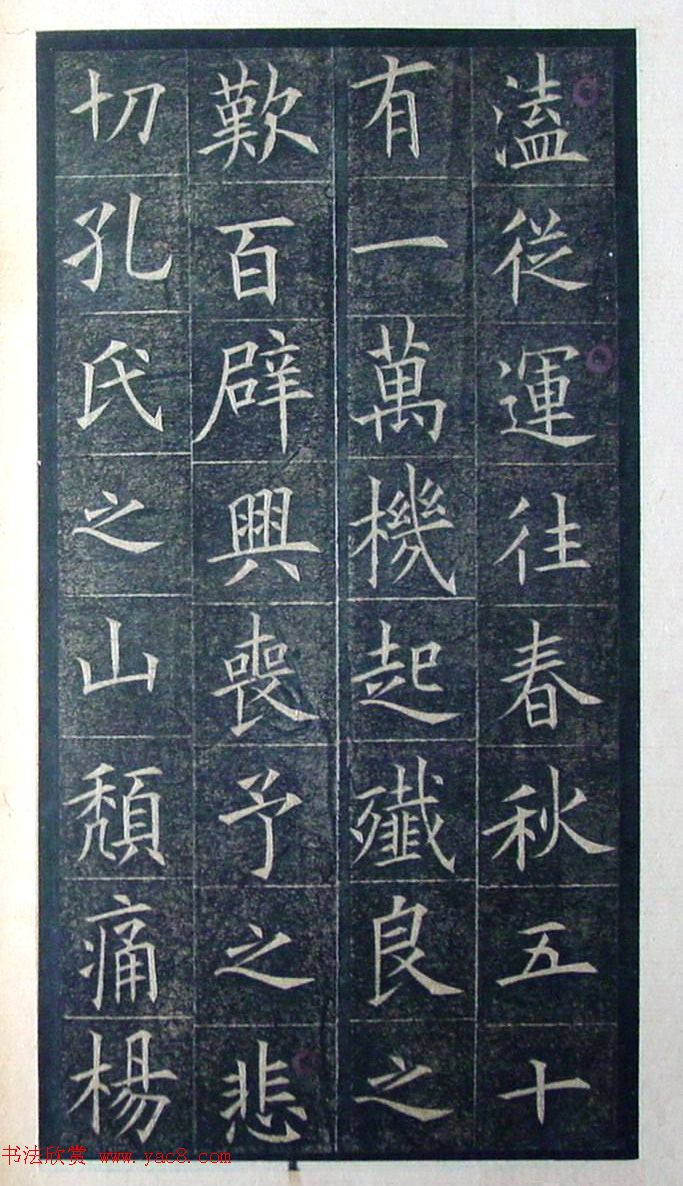 溘從運往春秋五十
有一萬機起殲良之
歎百辟興喪予之悲
切孔氏之山頹痛楊
书法欣赏 www.yac8.com